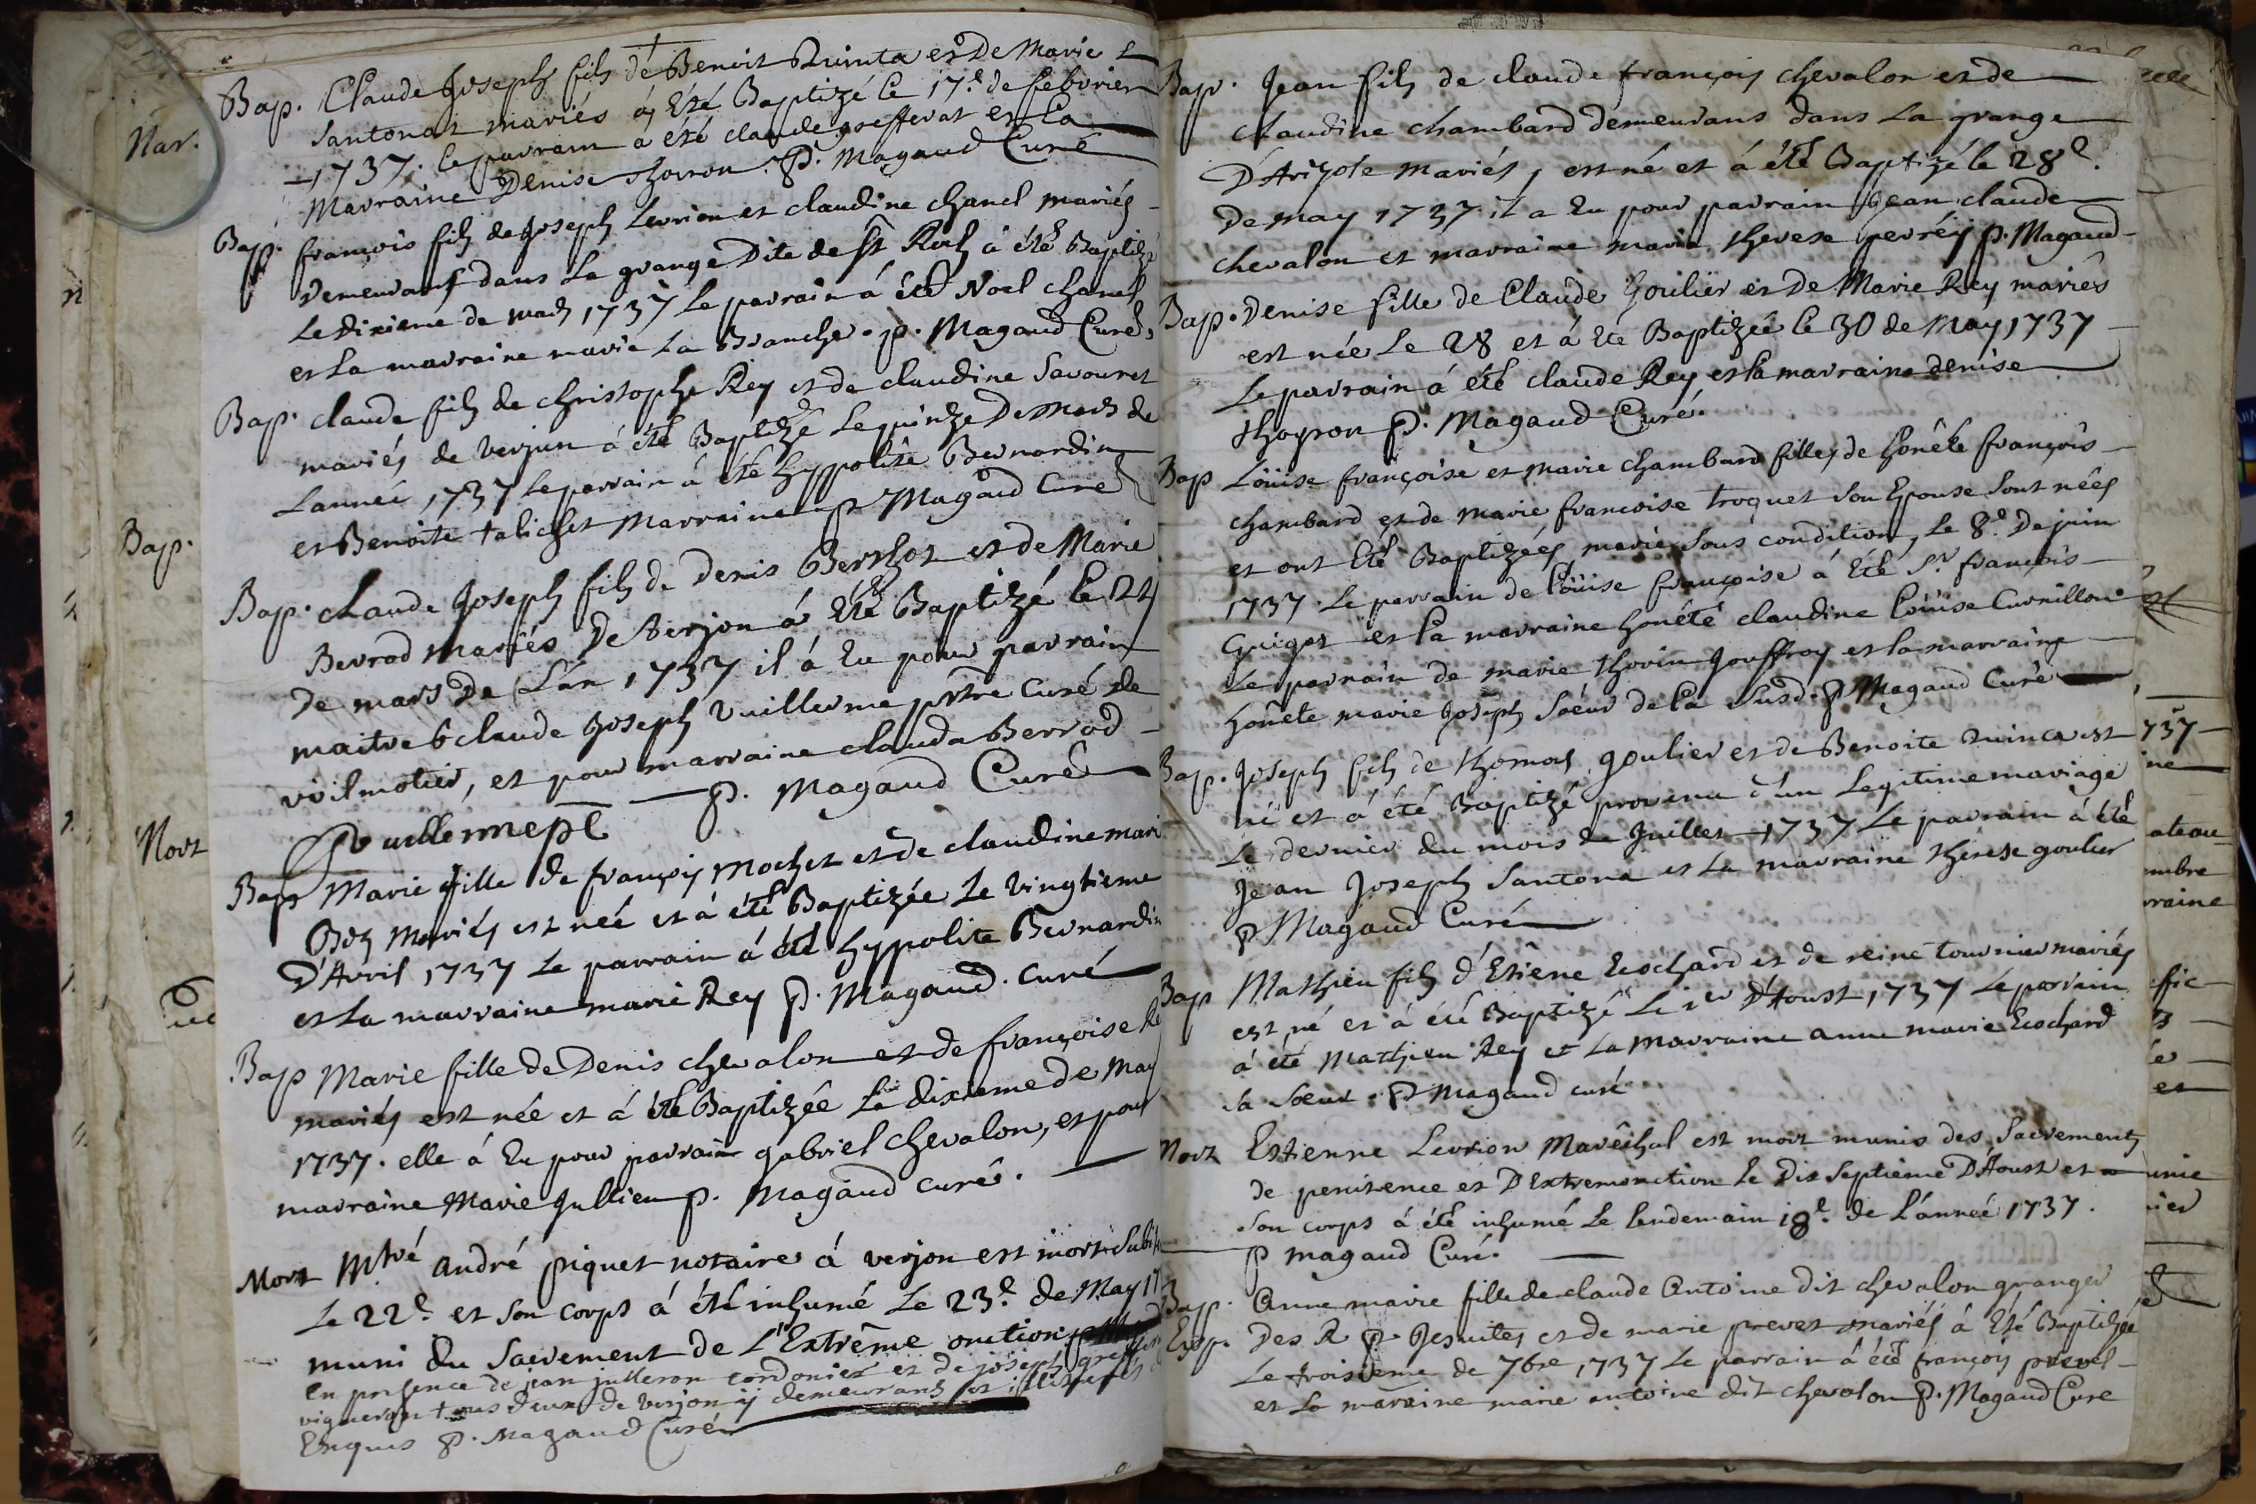 Bap. Claude Joseph fils de Benoit Quinta et De Marie
Santonat mariés á Eté Baptizé le 17e. de febvrier
1737. le parrain á eté claude et la
Marraine Denise P. Magaud Curé
Bap. françois fils de Joseph Levrion et claudine chanel mariés
Demeurant dans La grange Dite de St Roch á été Baptizé
Le Dixieme de mars 1737 Le parrain á été Noel chanel
et La marraine marie La Branche. p. Magaud Curé
Bap. claude fils de christophe Rey et de claudine Savouret
mariés de verjun á été Baptizé Le quinze De Mars de
L'année 1737 Le parrain á été hyppolite Bernardin
et Benoite talichet Marraine p Magaud Curé
Bap. claude Joseph fils de Denis Berthot et de Marie
Berrod mariés De Verjon á Eté Baptizé le 24
De mars De L'an 1737 il á Eu pour parrain
maitre claude Joseph Vuillerme prtre Curé de
villmotier, et pour marraine clauda Berrod
P. Magaud Curé
Vuillerme
Bap Marie fille de françois Mochet et de claudine mari
Boz Mariés est neé et á été Baptizée Le vingtieme
D'Avril 1737 Le parrain á été hyppolite Bernardin
et La marraine marie Rey P. Magaud. curé
Bap Marie fille de Denis chevalon et de françoise Re
mariés est née et á été Baptizée Le dixieme de May
1737. elle á Eu pour parrain gabriel chevalon, et pour
marraine Marie Jullien p. Magaud curé.
Mort Mtre andré piquet notaire á verjon est mort
Le 22e. et Son corps á été inhumé Le 23e. de May 17
muni du Sacrement de L'Extrême onction
En presence de jean julleron cordonier et de joseph
vigneron tous deux de verjon y demeurans
Enquis P. Magaud Curé
Bap. Jean fils de claude françois chevalon et de
claudine chambard demeurans dans La grange
D'Arizole mariés, est né et á été Baptizé le 28e.
De may 1737 il a Eu pour parrain Jean claude
chevalon et marraine marie therese P. Magaud
Bap. Denise fille de Claude Goulier et De Marie Rey mariés
est née Le 28 et á été Baptizée le 30 de May 1737
Le parrain á été claude Rey et la marraine denise
P. Magaud Curé.
Bap Loüise françoise et marie chambard filles de honête françois
chambard et de marie francoise troquet Son Epouse Sont nées
et ont Eté Baptizées, marie Sous condition, Le 8e. De juin
1737. Le parrain de Loüise françoise á Eté Sr. françois
Guigot et La marraine honête claudine Loüise
Le parrain de marie Jouffroy et la marraine
honête marie Joseph Soeur de La Susd. P. Magaud Curé
Bap. Joseph fils de thomas goulier et de Benoite est
né et á été Baptizé provenu d'un Legitime mariage
Le dernier du mois de Juillet 1737 Le parrain á été
Jean Joseph Santona et La marraine thérese goulier
P Magaud Curé
Bap Mathieu fils d'Etiene Ecochard et de reine tournier mariés
est né et á été Baptizé Le 1er D'Aoust 1737 Le parrain
á été Mathieu Rey et La marraine anne marie Ecochard
Sa Soeur. P Magaud curé
Mort Estienne Levrion Marêchal est mort munis des Sacrements
de penitence et D'Extremonction Le Dix Septieme D'Aoust et
Son corps á été inhumé Le lendemain 18e. de L'année 1737.
P magaud Curé.
Bap. Anne marie fille de claude Antoine dit chevalon granger
Des R. P. Jesuites et de marie prevet mariés á Eté Baptizée
Le troisieme de 7bre 1737 Le parrain á été françois
et La maraine marie antoine dit chevalon P. Magaud Cure
Nar.
Bap.
Mort
737
ne
ateau
mbre
rraine
fic
et